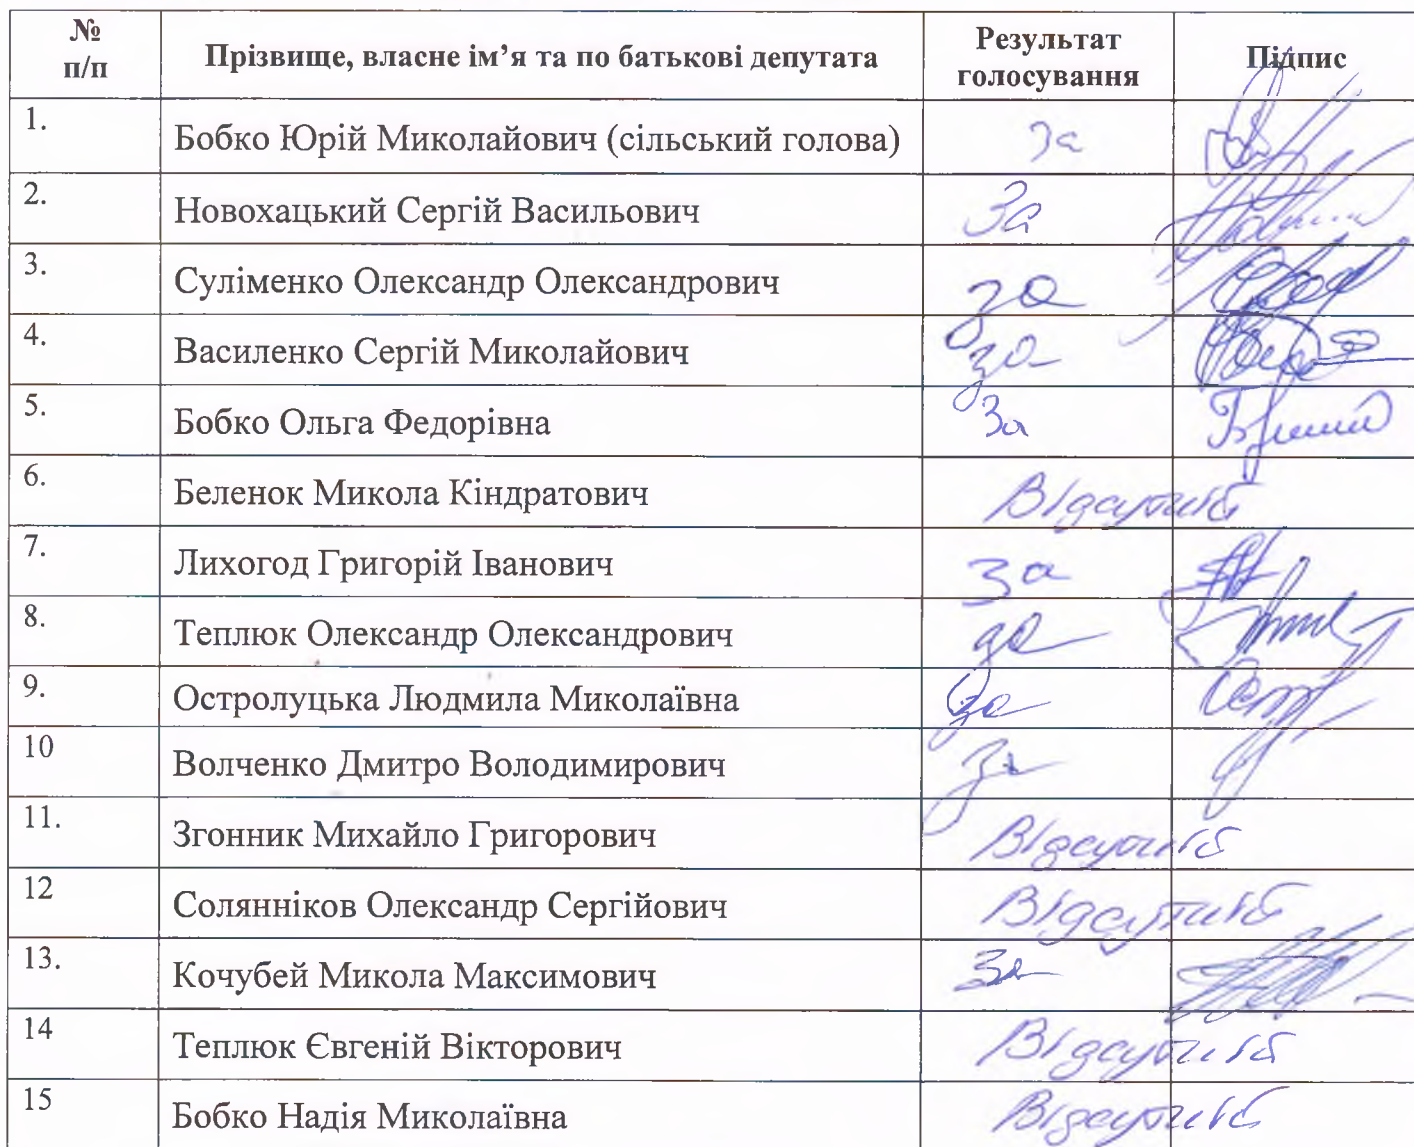 № п/п Прізвище, власне ім’я та по батькові депутата Результат голосування Підпис
1. Бобко Юрій Миколайович (сільський голова) за
2. Новохацький Сергій Васильович За
3. Суліменко Олександр Олександрович за
4. Василенко Сергій Миколайович за
5. Бобко Ольга Федорівна За
6. Беленок Микола Кіндратович Відсутній
7. Лихогод Григорій Іванович За
8. Теплюк Олександр Олександрович за
9. Остролуцька Людмила Миколаївна За
10 Волченко Дмитро Володимирович За
11. Згонник Михайло Григорович Відсутній
12 Солянніков Олександр Сергійович Відсутній
13. Кочубей Микола Максимович За
14 Теплюк Євгеній Вікторович Відсутній
15 Бобко Надія Миколаївна Відсутній